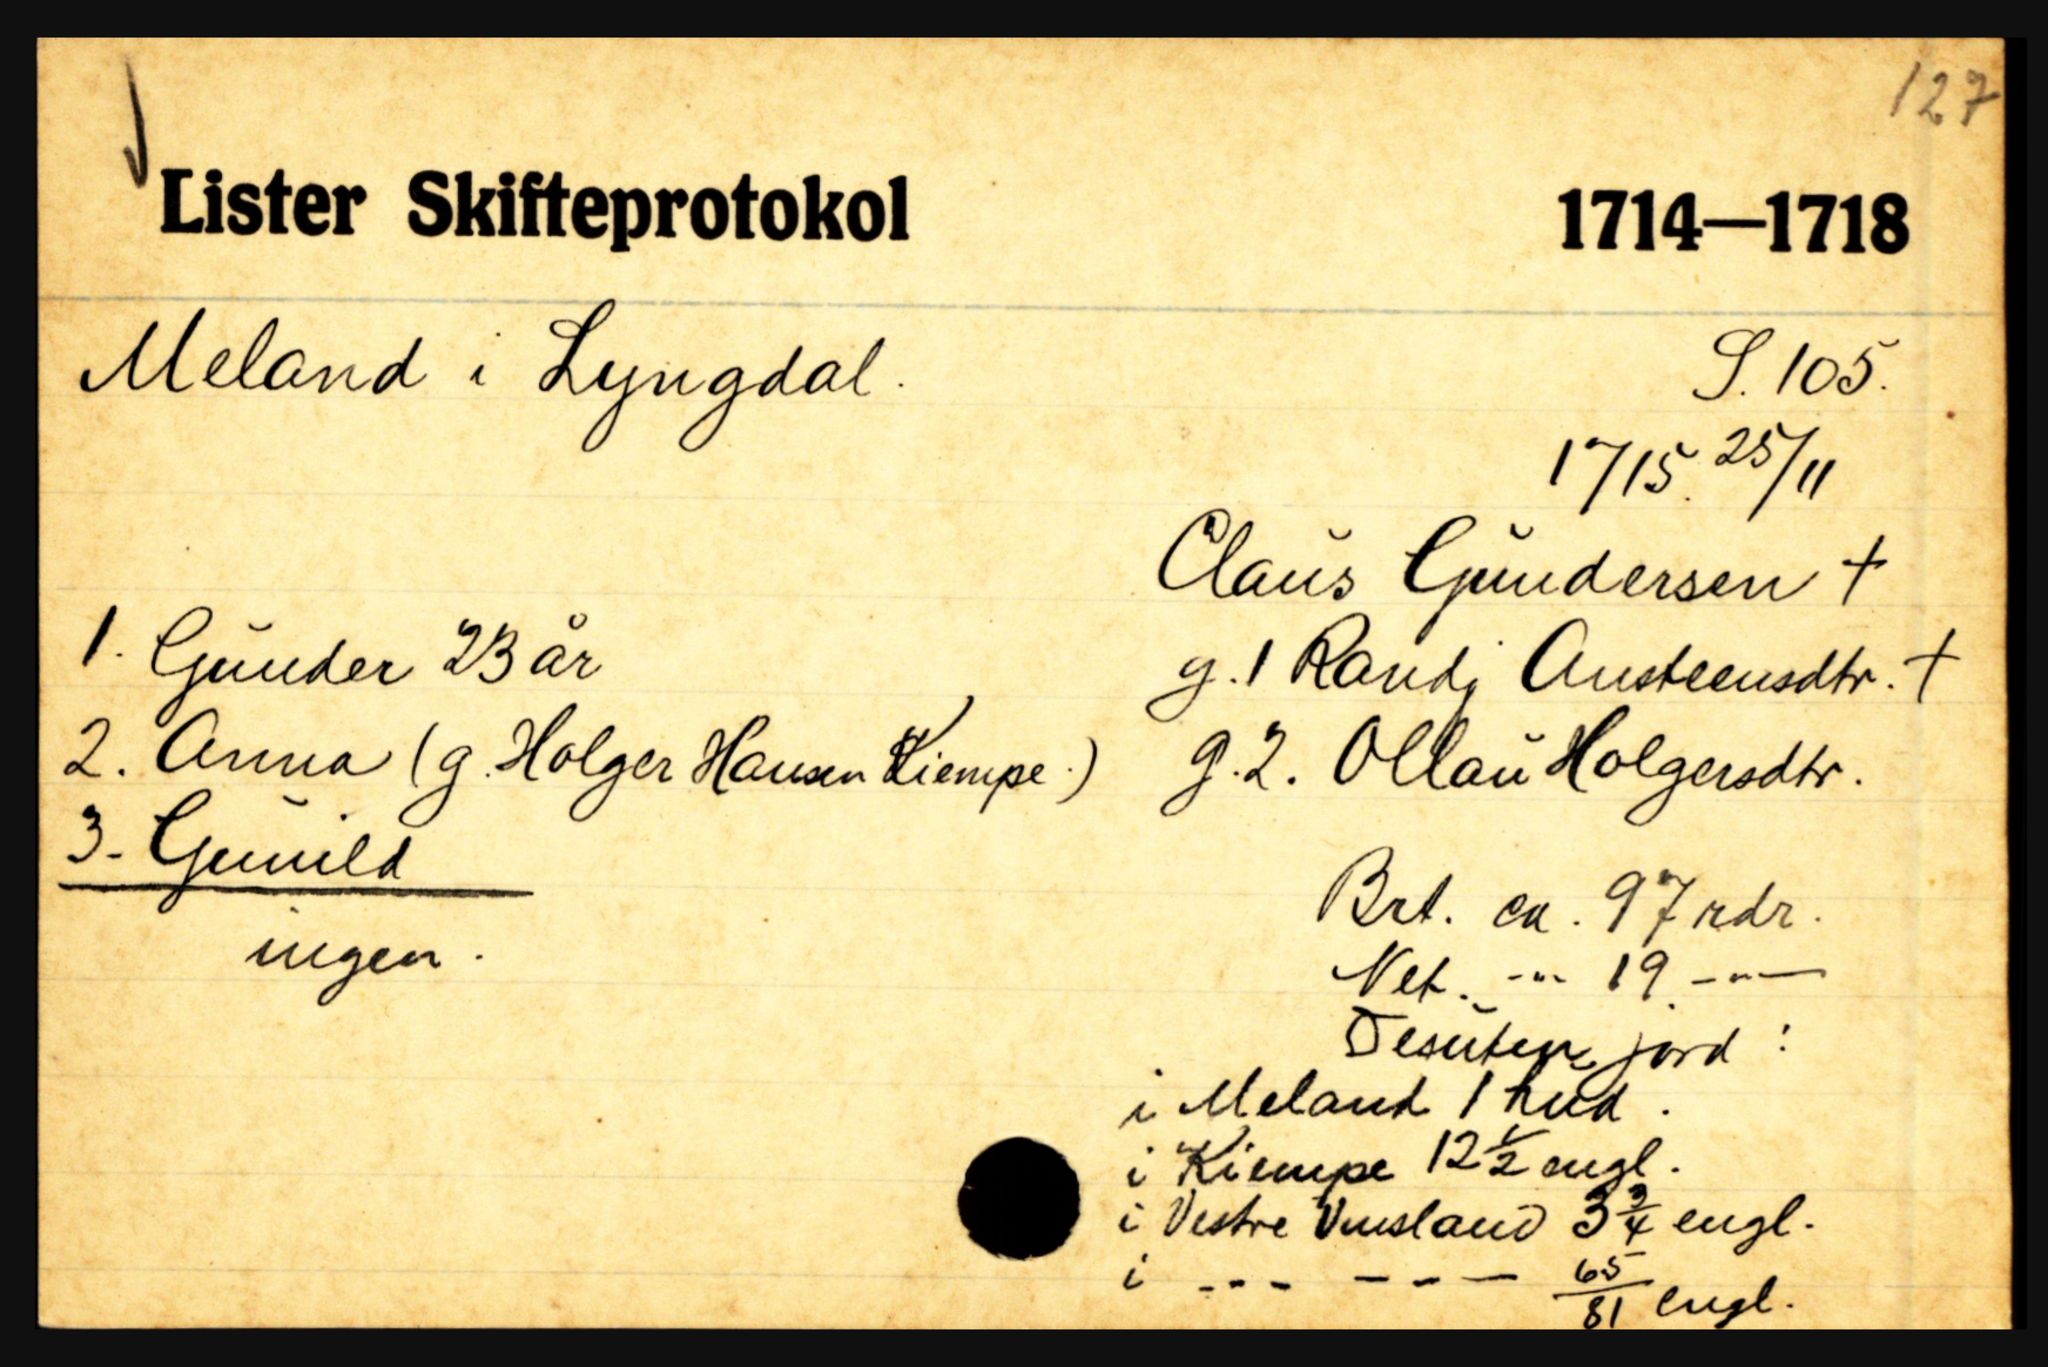 127
Lister Skifteprotokol 1714—1718
Meland i Lyngdal. S. 105.
1715. 25/11
Claus Gundersen +
1. Gunder 23 år g. 1 Randj Austeensdtr. +
2. Anna (g. Holger Hansen Kiempe.) g. 2. Ollau Holgersdtr.
3. Gunild
ingen.
Brt. ca. 97 rdr.
Net. -"- 19 -"-
Desuten jord:
i Meland 1 hud.
i Kiempe 12 1/2 engl.
i Vestre 3 3/4 engl.
i --- --- 65/81 engl.